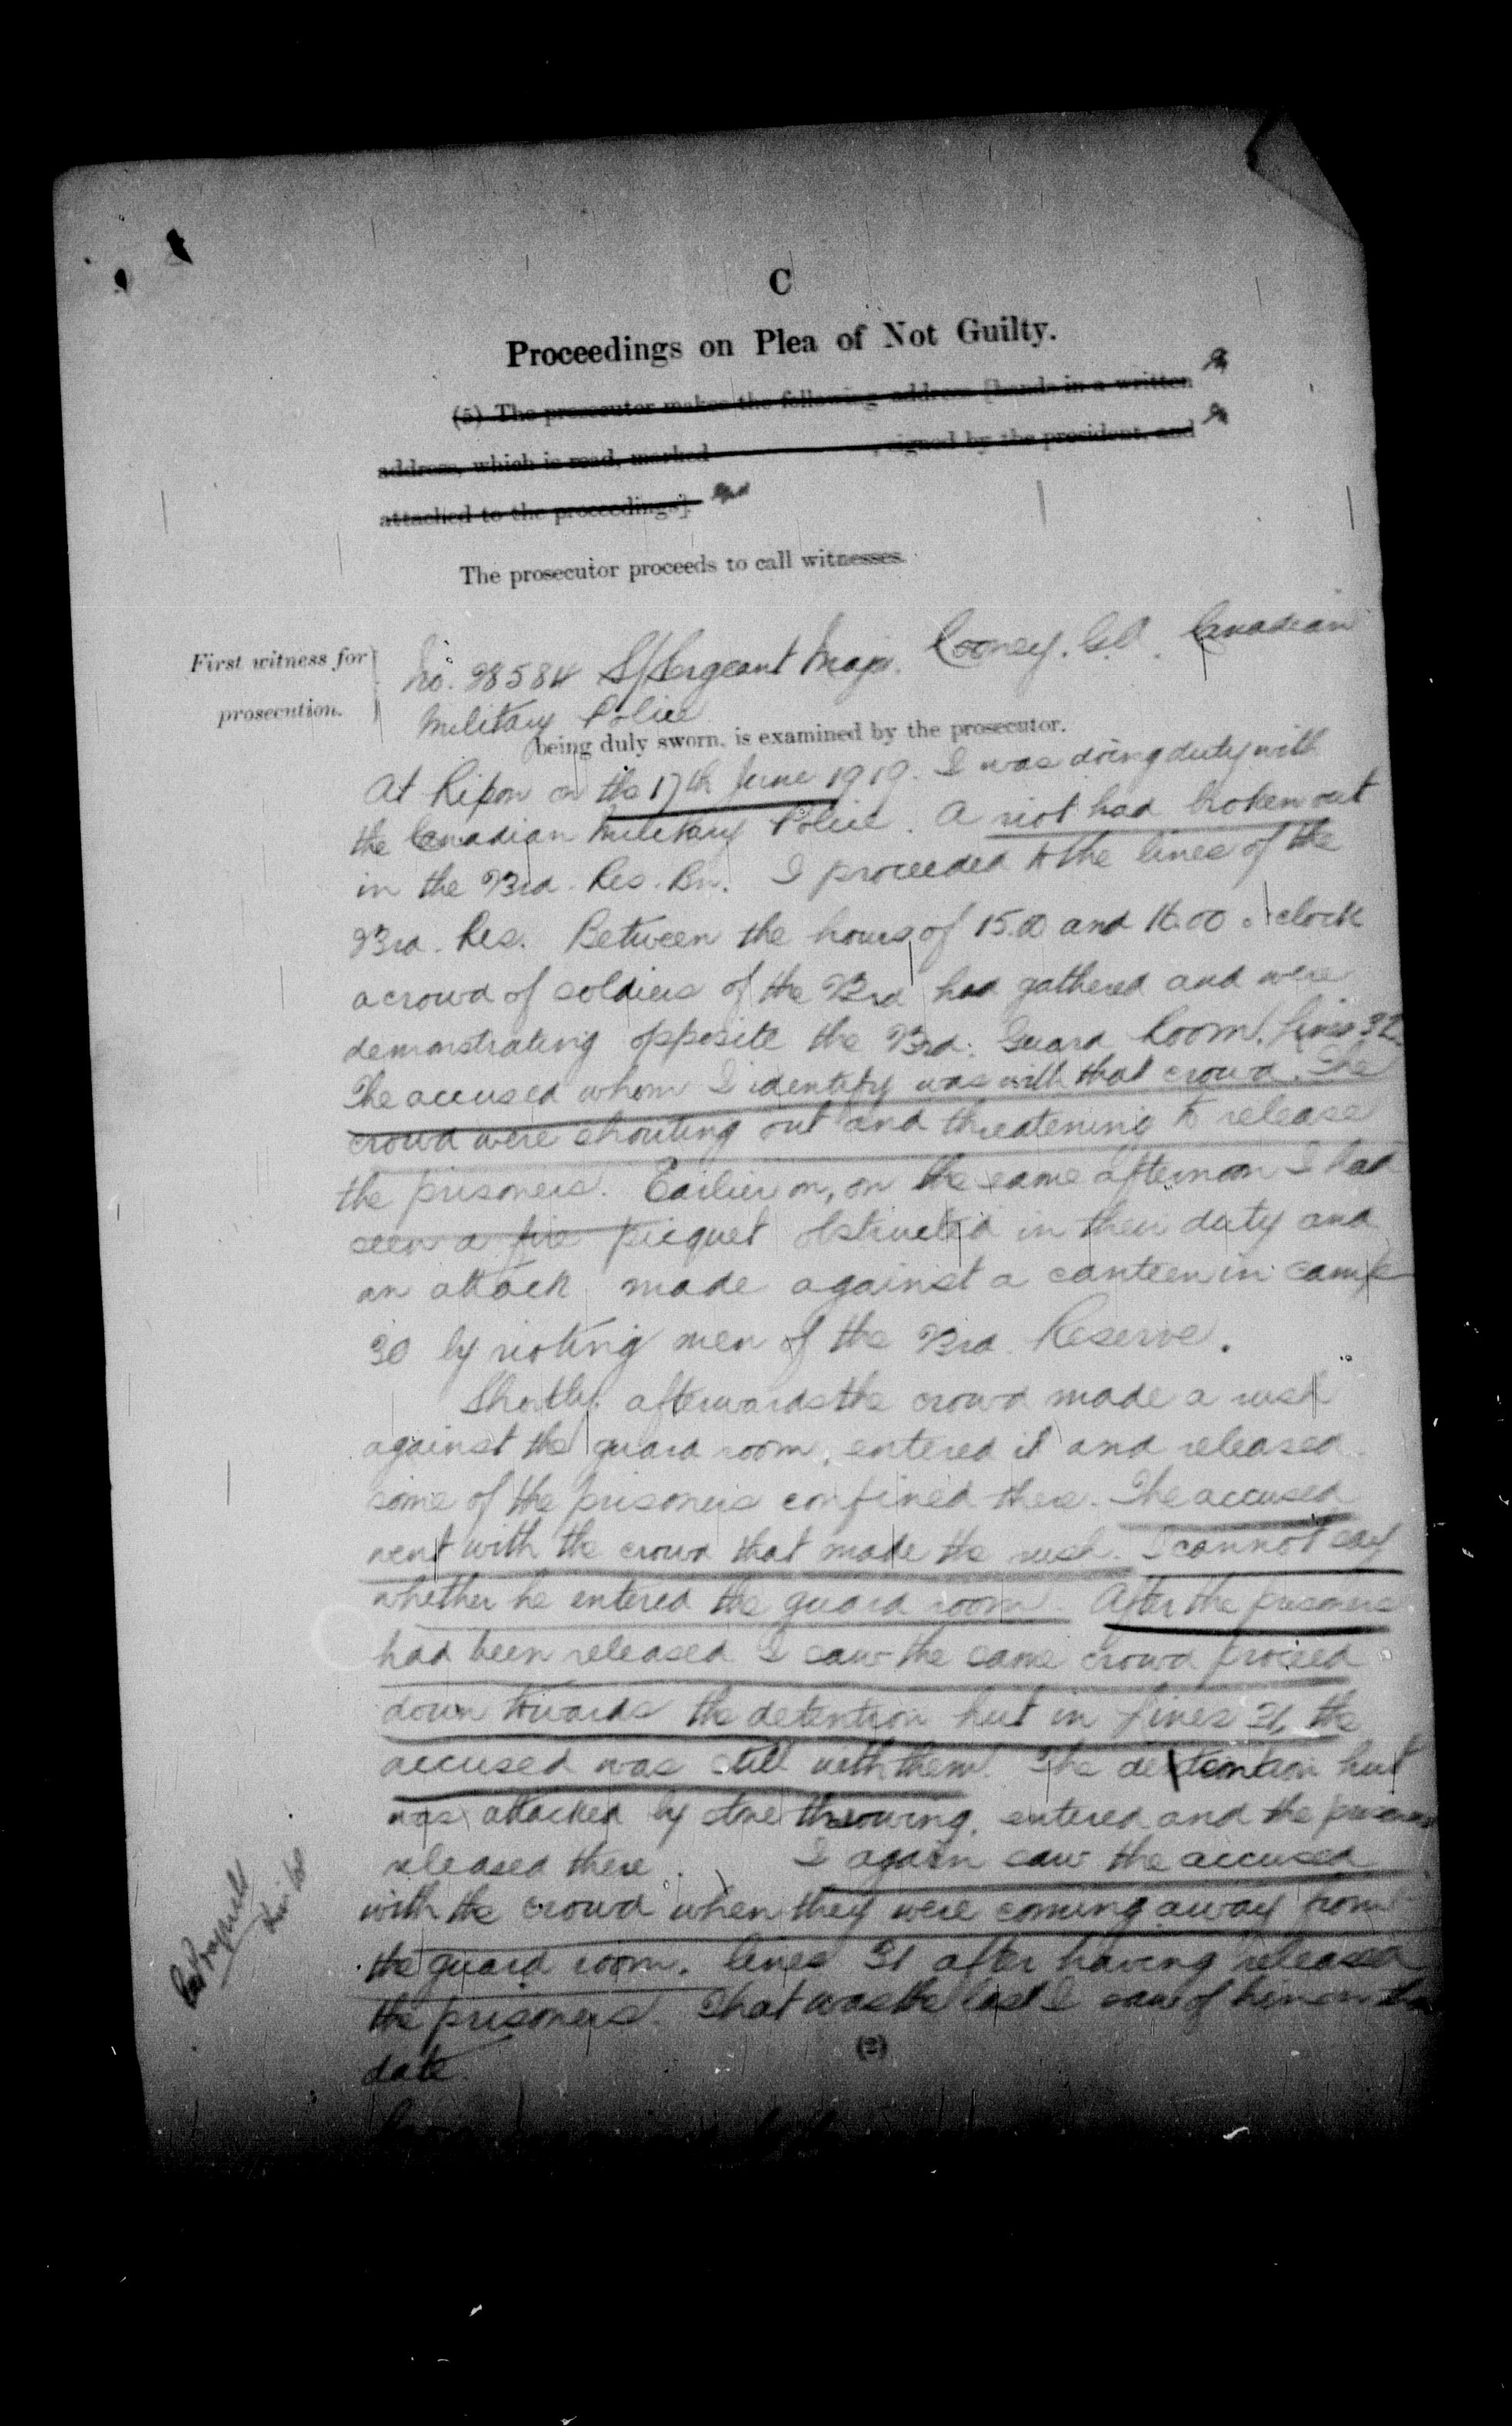 C
Proceedings on Plea of Not Guilty.
(5) The prosecutor makes the following address [hands in a written
address, which is read, marked , signed by the president, and
attached to the proceedings].
The prosecutor proceeds to call witnesses.
First witness for
prosecution.
No. 28584 S/Sergeant Major. Cooney. G.D. Canadian
Military Police
being duly sworn, is examined by the prosecutor.
At Ripon on the 17th June 1919. I was doing duty with
the Canadian Military Police. A riot had broken out
in the 23rd. Res. Bn. I proceeded to the lines of the
23rd. Res. Between the hours of 15.00 and 16.00 o'clock
a crowd of soldiers of the 23rd had gathered and were
demonstrating opposite the 23rd. Guard Room. Lines 32.
The accused whom I identify was with that crowd. The
crowd were shouting out and threatening to release
the prisoners. Earlier on, on the same afternoon I had
seen a fire picquet obstructed in their duty and
an attack made against a canteen in camp
30 by rioting men of the 23rd. Reserve.
Shortly afterwards the crowd made a rush
against the guard room, entered it and released
some of the prisoners confined there. The accused
went with the crowd that made the rush. I cannot say
whether he entered the guard room. After the prisoners
had been released I saw the same crowd proceed
down towards the detention hut in Lines 31, the
accused was still with them. The detention hut
was attacked by stone throwing, entered and the prisoners
released there. I again saw the accused
with the crowd when they were coming away from
the guard room. lines 31 after having released
the prisoners. That was the last I saw of him on that
date.
(2)